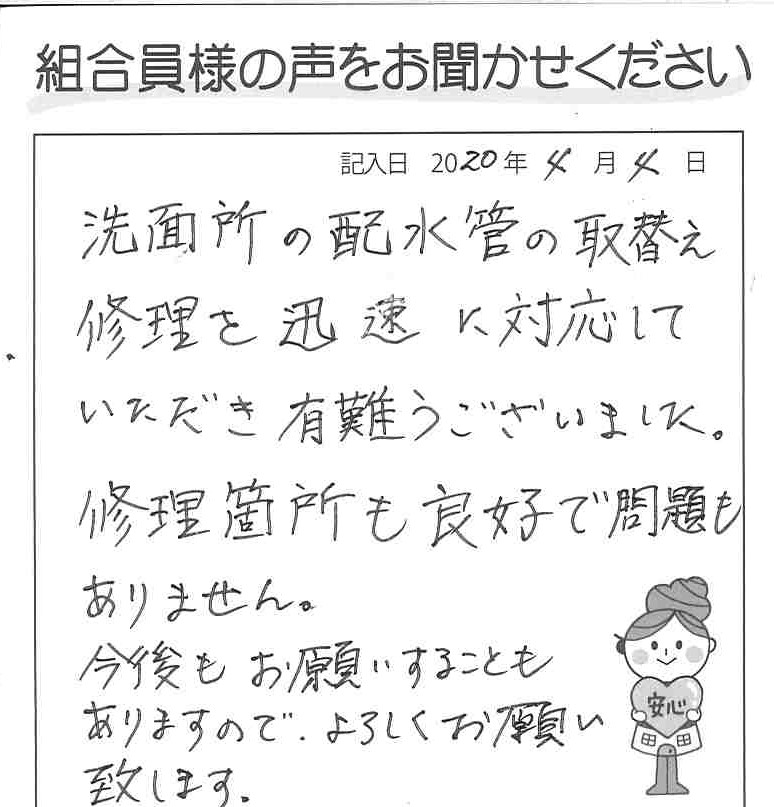 組合員様の声をお聞かせください
記入日 2020年 4月 4日
洗面所の配水管の取替え
修理を迅速に対応して
いただき有難うございました。
修理箇所も良好で問題も
ありません。
今後もお願いすることも
ありますので、よろしくお願い
致します。
安心